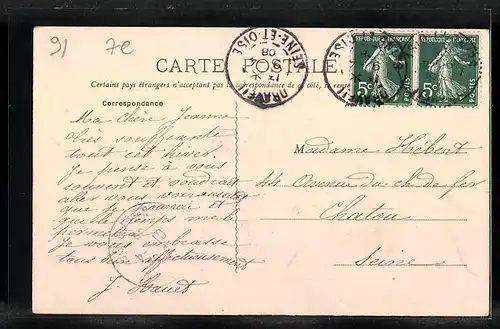 91 7e
CARTE POSTALE
Certains pays étrangers n'acceptent pas la correspondance de ce côté, se rense
Correspondance
DRAVEIL
SEINE-ET-OISE
08
REPUBLIQUE FRANÇAISE
5c
POSTES
REPUBLIQUE FRANÇAISE
5c
POSTES
Ma chère Jeanne
très souffrante
tout cet hiver.
Je pense à vous
souvent et voudrais
aller vous voir aussitôt
que je pourrai et
que le temps me le
permettra
Je vous embrasse
tous bien affectueusement
J. Hauet
Madame Hébert
44 Avenue du ch. de fer
Chatou
Seine